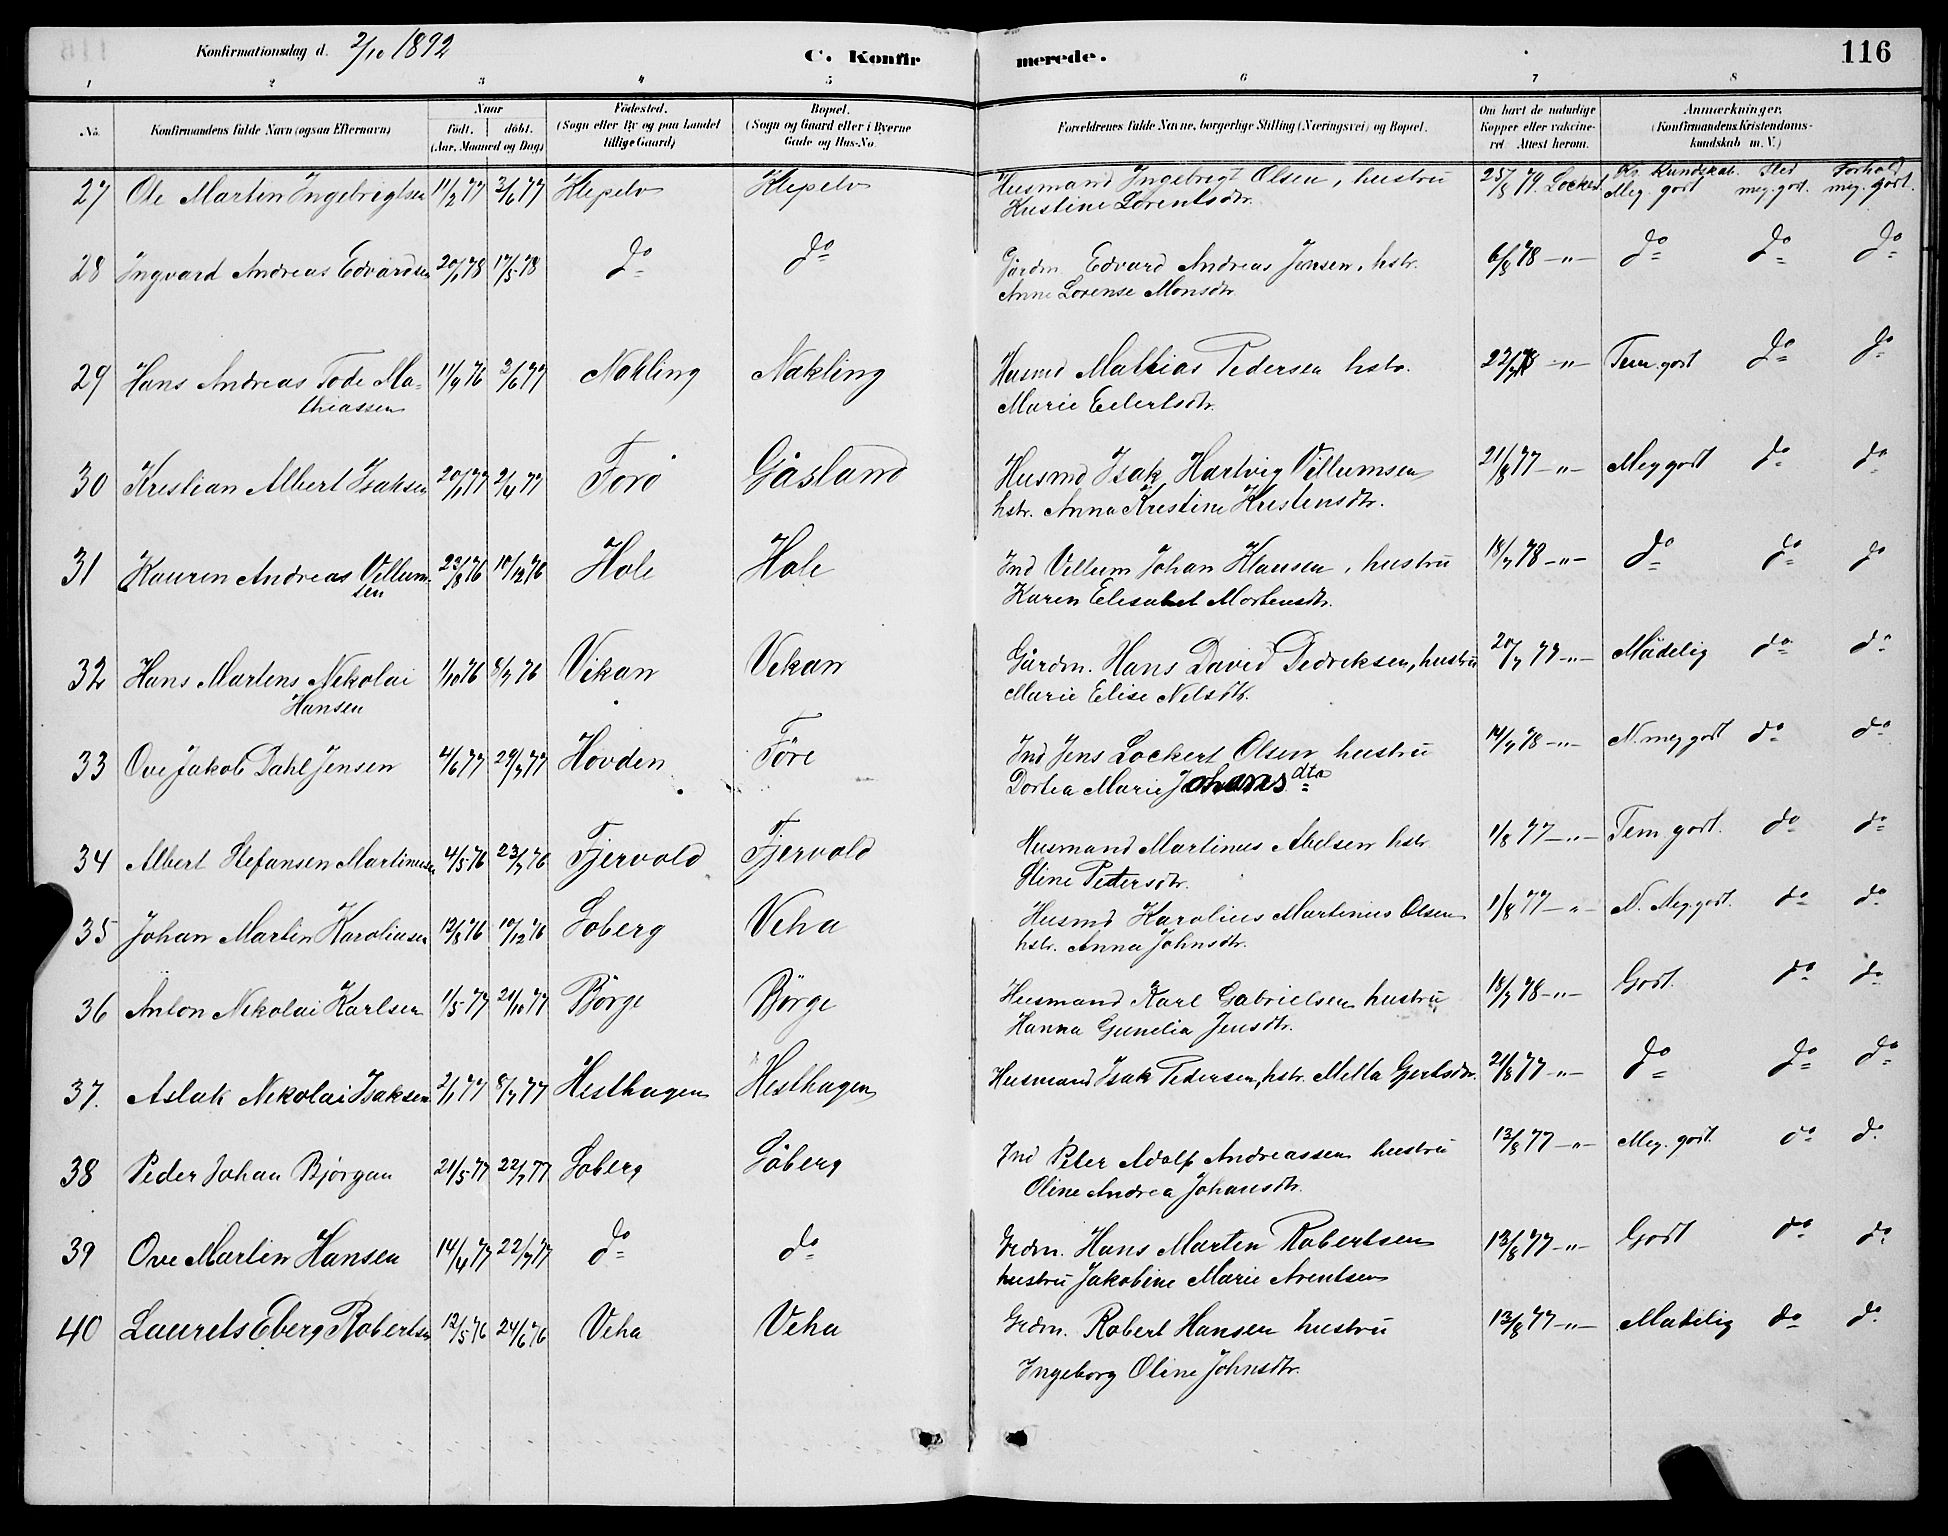 Konfirmationsdag d. 2/10 1892 C. Konfirmerede. 116
1 2 3 4 5 6 7 8
No. Konfirmandens fulde Navn (ogsaa Efternavn) Naar födt. döbt. (Aar, Maaned og Dag) Födested. (Sogn eller By og paa Landet tillige Gaard) Bopæl. (Sogn og Gaard eller i Byerne Gade og Hus-No. Forældrenes fulde Navne, borgerlige Stilling (Næringsvei) og Bopæl. Om havt de naturlige Kopper eller vakcineret. Attest herom. Anmærkninger. (Konfirmandens Kristendomskundskab m. V.)
Kr. Kundskab. Flid Forhold
27 Ole Martin Ingebrigtsen 11/2 77 2/6 77 Klepelv Klepelv Husmand Ingebrigt Olsen, hustru 25/8 79 Lockert Meg. godt meg. godt. meg. godt.
Kristine Lorentsdtr.
28 Ingvard Andreas Edvardsen 20/1 78 17/5 78 do do Gårdm. Edvard Andreas Jensen, hstr. 6/8 78 -"- do do do
Anne Lorense Monsdtr.
29 Hans Andreas Tode Ma- 11/9 76 2/6 77 Nakling Nakling Husmd Mathias Pedersen hstr. 22/7 78 -"- Tem. godt do do
thiassen Marie Eilertsdtr.
30 Kristian Albert Isaksen 20/1 77 2/4 77 Forö Gåsland Husmd Isak Hartvig Villumsen 21/8 77 -"- Meg godt do do
hstr. Anna Kristine Kristensdtr.
31 Kauren Andreas Villum- 22/8 76 10/12 76 Hole Hole Ind Villum Johan Klausen, hustru 18/7 78 -"- do do do
sen Karen Elisabet Mortensdtr.
32 Hans Martens Nikolai 1/10 76 8/7 76 Vikan Vikan Gårdm. Hans David Dedriksen, hustru 20/7 77 -"- Mådelig do do
Hansen Marie Elise Nelsdtr.
33 Ove Jakob Dahl Jensen 4/6 77 29/7 77 Hovden Före Ind Jens Lockert Olsen hustru 14/7 78 -"- N. meg godt do do
Dortea Marie Johansdta
34 Albert Stefansen Martinusen 4/5 76 23/7 76 Fjervold Fjervold Husmand Martinus Abelsen hstr. 1/8 77 -"- Tem. godt. do do
Stine Petersdtr.
35 Johan Martin Karoliusen 12/8 76 10/12 76 Loberg Veha Husmd Karolius Martinus Olsen 1/8 77 -"- N. Meg. godt. do do
hstr. Anna Johnsdtr.
36 Anton Nikolai Karlsen 1/5 77 21/10 77 Börge Börge Husmand Karl Gabrielsen hustru 18/7 78 -"- Godt. do do
Hanna Gunelia Jensdtr.
37. Aslak Nikolai Isaksen 2/1 77 8/7 77 Hesthagen Hesthagen Husmand Isak Pedersen, hstr. Metta Gjertsdtr. 21/8 77 -"- do do do
38 Peder Johan Bjørgan 21/5 77 22/7 77 Loberg Löberg Ind Peter Adolf Andreassen hustru 13/8 77 -"- Meg. godt. do do
Oline Andrea Johansdtr.
39 Ove Martin Hansen 14/4 77 22/7 77 do do Grdm. Hans Martin Robertsen 13/8 77 -"- Godt do do
hustru Jakobine Marie Arentsen
40 Laurets Eberg Robertsen 12/5 76 24/6 76 Veha Veha Grdm. Robert Hansen hustru 13/8 77 -"- Madelig do do
Ingeborg Oline Johnsdtr.